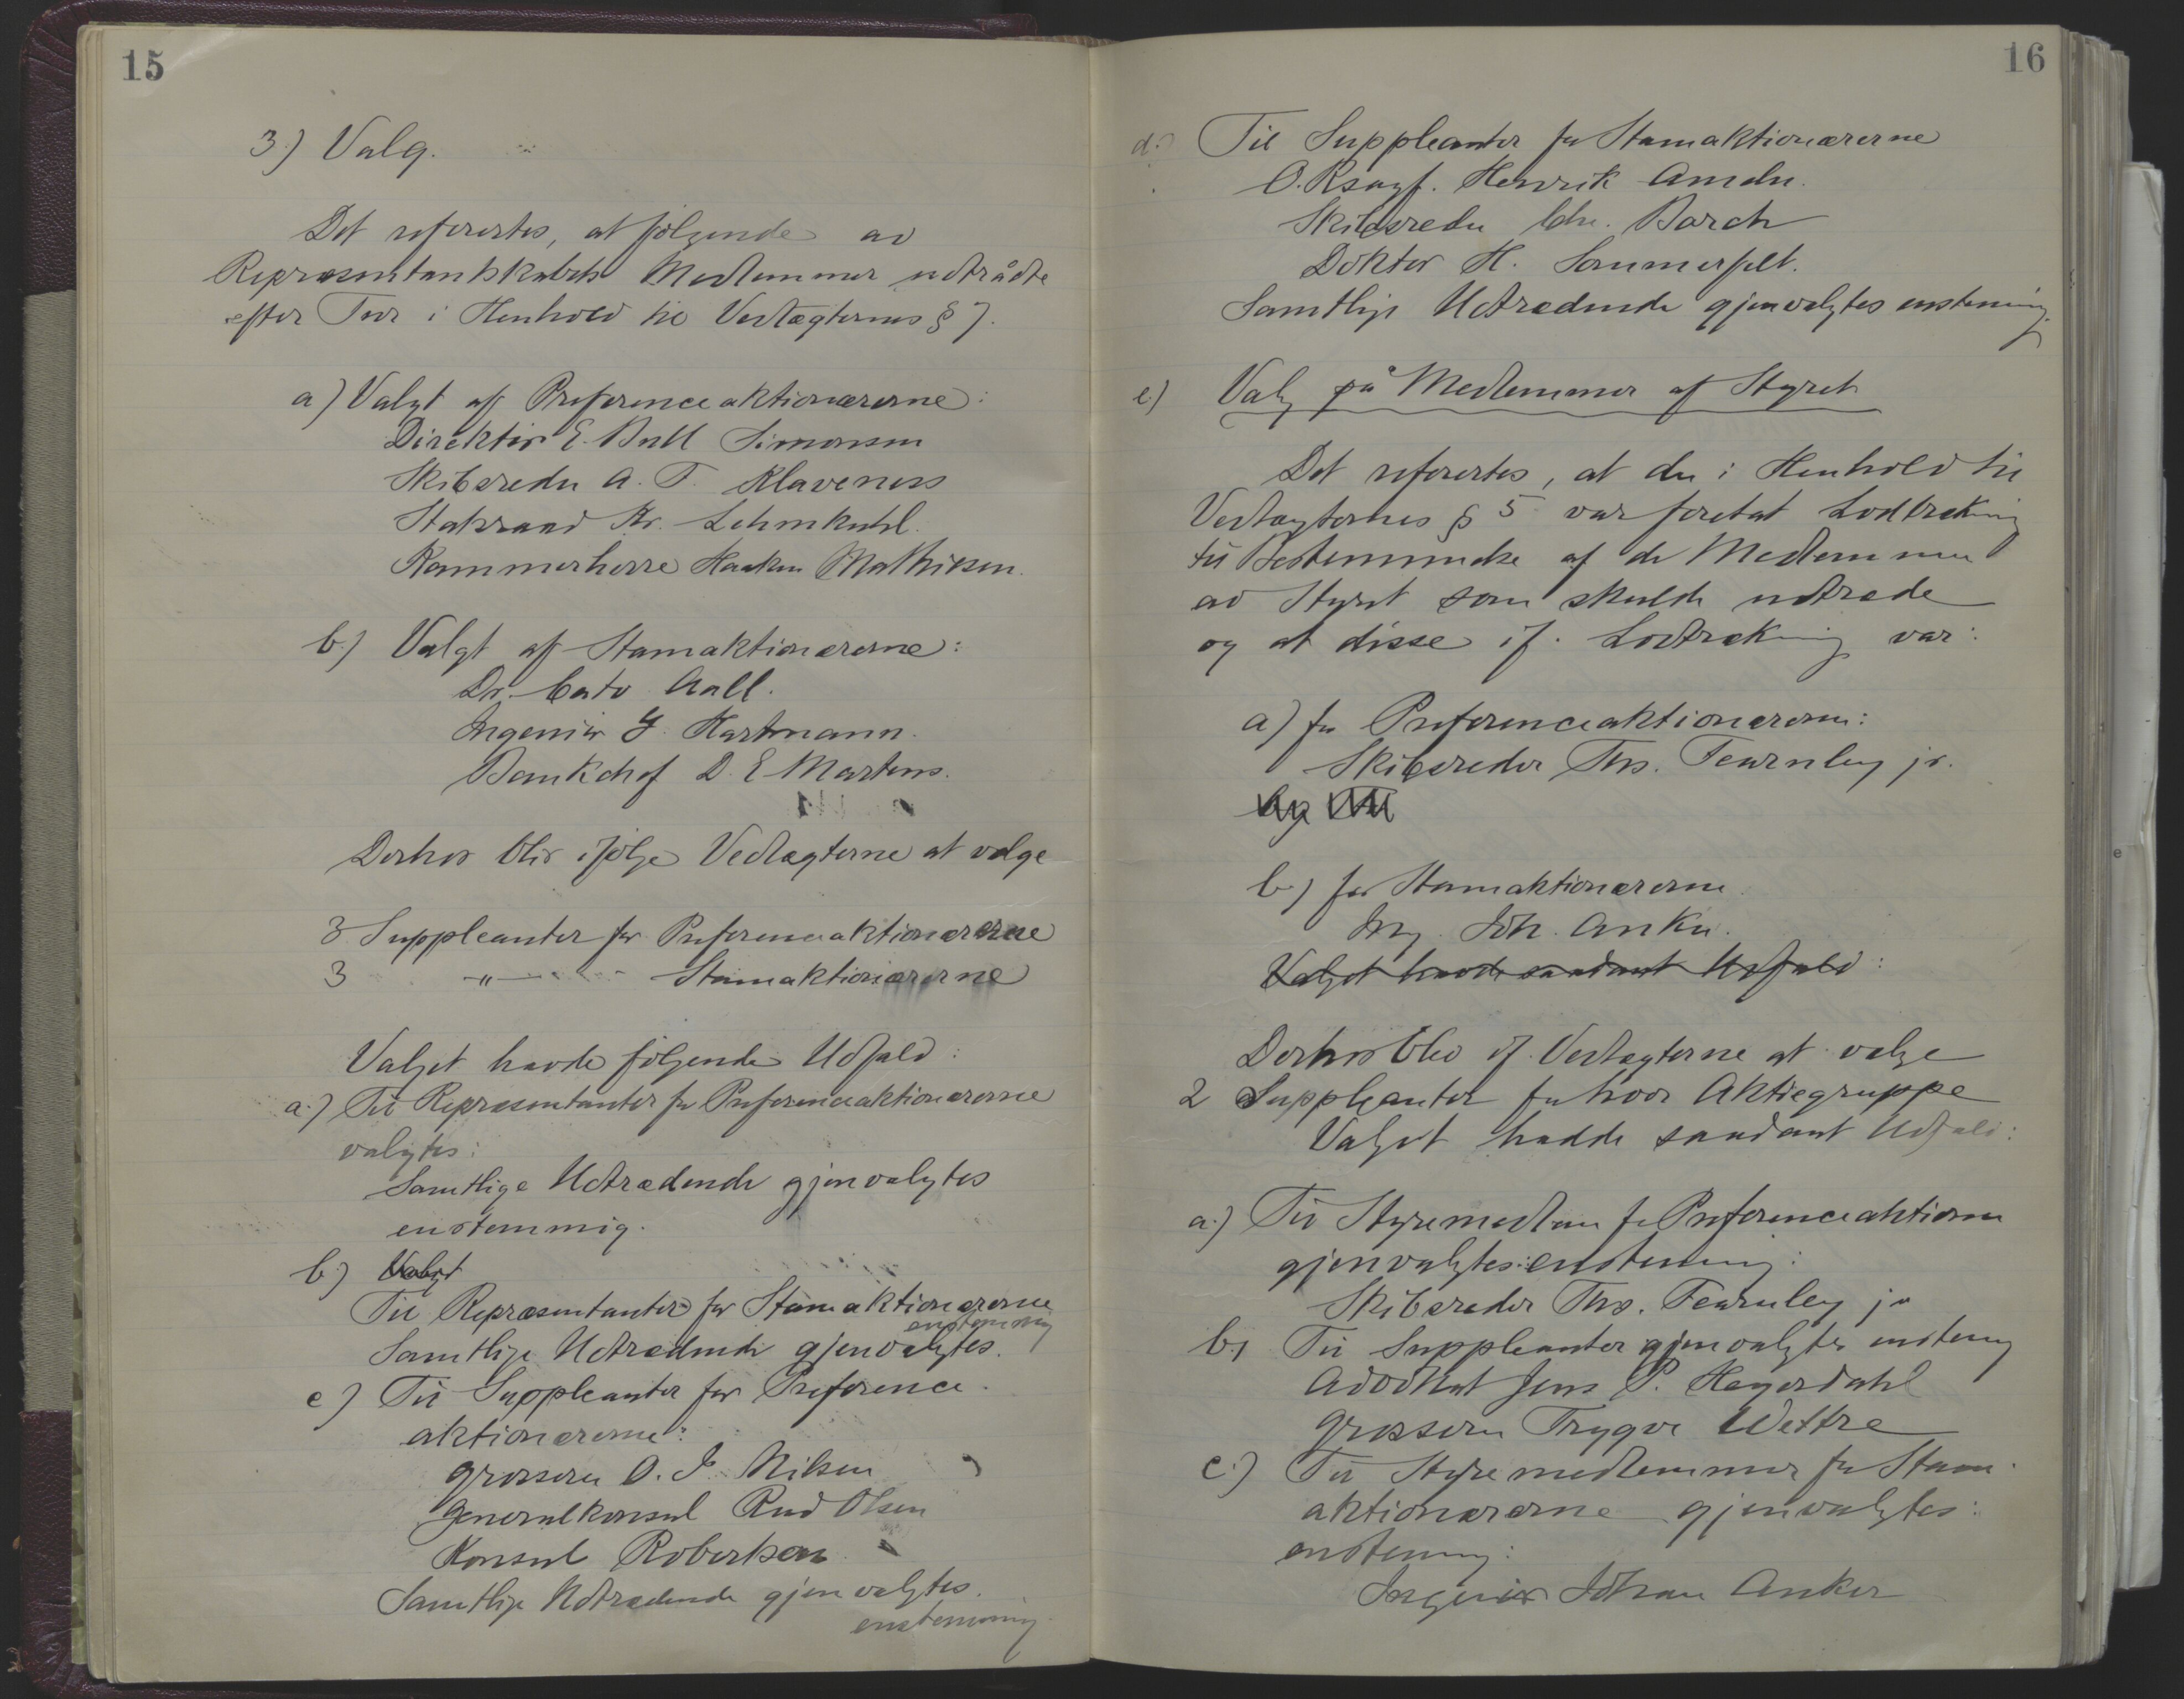 15
3.) Valg.
Det refertes, at følgende av
Repræsentantskabets Medlemmer udtrådte
efter Tur i Henhold til Vedtægternes § 7.
a) Valgt af Preferenceaktionærerne:
Direktør E. Bull Simonsen
Skibsreder A. F. Klaveness
Statsraad Kr. Lehmkuhl.
Kammerherre Haaken Mathiesen.
b) Valgt af Stamaktionærerne:
Dr. Cato Aall.
Ingeniør G. Hartmann.
Bankchef D. E. Martens.
Derhos blir ifølge Vedtægterne at vælge
3 Suppleanter for Preferenceaktionærerne
3 -"- Stamaktionærerne
Valget havde følgende Udfald:
a.) Til Repræsentanter for Preferenceaktionærerne
valgtes:
Samtlige Udtrædende gjenvalgtes
enstemmig.
b) Valgt
Til Repræsentanter for Stamaktionærerne
enstemmig
Samtlige Udtrædende gjenvalgtes.
c) Til Suppleanter for Preference-
aktionærerne:
Grosserer O. J. Nilsen
Generalkonsul Rud Olsen
Konsul Robertson
Samtlige Udtrædende gjenvalgtes.
enstemmig
16
d.) Til Suppleanter for Stamaktionærerne
O.Rsagf. Henrik Ameln.
Skibsreder Chr. Borch
Doktor H. Sommerfelt.
Samtlige Udtrædende gjenvalgtes enstemmig.
e.) Valg på Medlemmer af Styret
Det refertes, at der i Henhold til
Vedtægternes § 5 var foretat Lodtrekning
til Bestemmelse af de Medlemmer
av Styret som skulde udtræde
og at disse if. Lodtrækning var:
a) for Preferenceaktionærerne:
Skibsreder Ths. Fearnley jr.
b) for Stamaktionærerne
Ing. Joh. Anker.
Valget havde saadant Udfald:
Derhos blev if. Vedtægterne at vælge
2 Suppleanter for hver Aktiegruppe
Valget hadde saadant Udfald:
a.) Til Styremedlem for Preferenceaktierne
gjenvalgtes enstemmig:
Skibsreder Ths. Fearnley jr
b) Til Suppleanter gjenvalgtes enstemmig
Advokat Jens P. Heyerdahl
Grosserer Trygve Wettre
c.) Til Styremedlemmer for Stam-
aktionærerne gjenvalgtes:
enstemmig:
Ingeniør Johan Anker